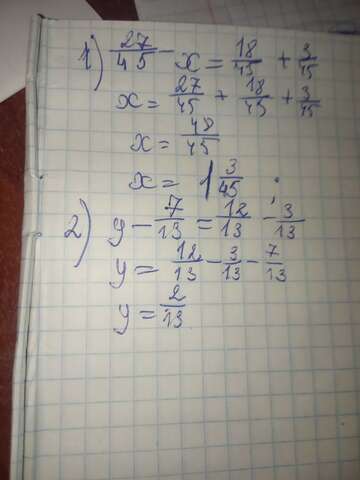 1) 27/45 - x = 18/45 + 3/45
x = 27/45 + 18/45 + 3/45
x = 48/45
x = 1 3/45 ;
2) y - 7/13 = 12/13 - 3/13
y = 12/13 - 3/13 - 7/13
y = 2/13